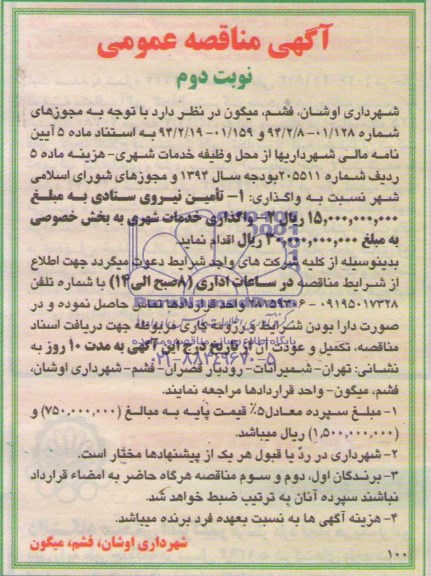 آگهی مناقصه عمومی
نوبت دوم
شهرداری اوشان، فشم، میگون در نظر دارد با توجه به مجوزهای
شماره ۰۱/۱۲۸-۹۴/۲/۸ و ۰۱/۱۵۹-۹۴/۲/۱۹ به استناد ماده ۵ آیین
نامه مالی شهرداریها از محل وظیفه خدمات شهری-هزینه ماده ۵
ردیف شماره ۲۰۵۵۱۱بودجه سال ۱۳۹۴ و مجوزهای شورای اسلامی
شهر نسبت به واگذاری: ۱- تأمین نیروی ستادی به مبلغ
۱۵,۰۰۰,۰۰۰,۰۰۰ ریال ۲- واگذاری خدمات شهری به بخش خصوصی
به مبلغ ۳۰,۰۰۰,۰۰۰,۰۰۰ ریال اقدام نماید.
بدینوسیله از کلیه شرکت های واجد شرایط دعوت میگردد جهت اطلاع
از شرایط مناقصه در ساعات اداری (۸صبح الی۱۴) با شماره تلفن
۰۹۱۹۵۰۱۷۳۲۸ - واحد قراردادها تماس حاصل نموده و در
صورت دارا بودن شرایط و رزومه کاری مربوطه جهت دریافت اسناد
مناقصه، تکمیل و عودت آن از تاریخ درج این آگهی به مدت ۱۰ روز به
نشانی: تهران-شمیرانات- رودبار قصران-فشم-شهرداری اوشان،
فشم، میگون- واحد قراردادها مراجعه نمایند.
۱- مبلغ سپرده معادل۵٪ قیمت پایه به مبالغ (۷۵۰,۰۰۰,۰۰۰) و
(۱,۵۰۰,۰۰۰,۰۰۰) ریال میباشد.
۲- شهرداری در ردّ یا قبول هر یک از پیشنهادها مختار است.
۳- برندگان اول، دوم و سوم مناقصه هرگاه حاضر به امضاء قرارداد
نباشند سپرده آنان به ترتیب ضبط خواهد شد.
۴- هزینه آگهی ها به نسبت بعهده فرد برنده میباشد.
شهرداری اوشان، فشم، میگون
۱۰۰
پایگاه اطلاع رسانی مناقصه و مزایده
۰۲۱-۸۸۳۴۹۶۷۰-۵